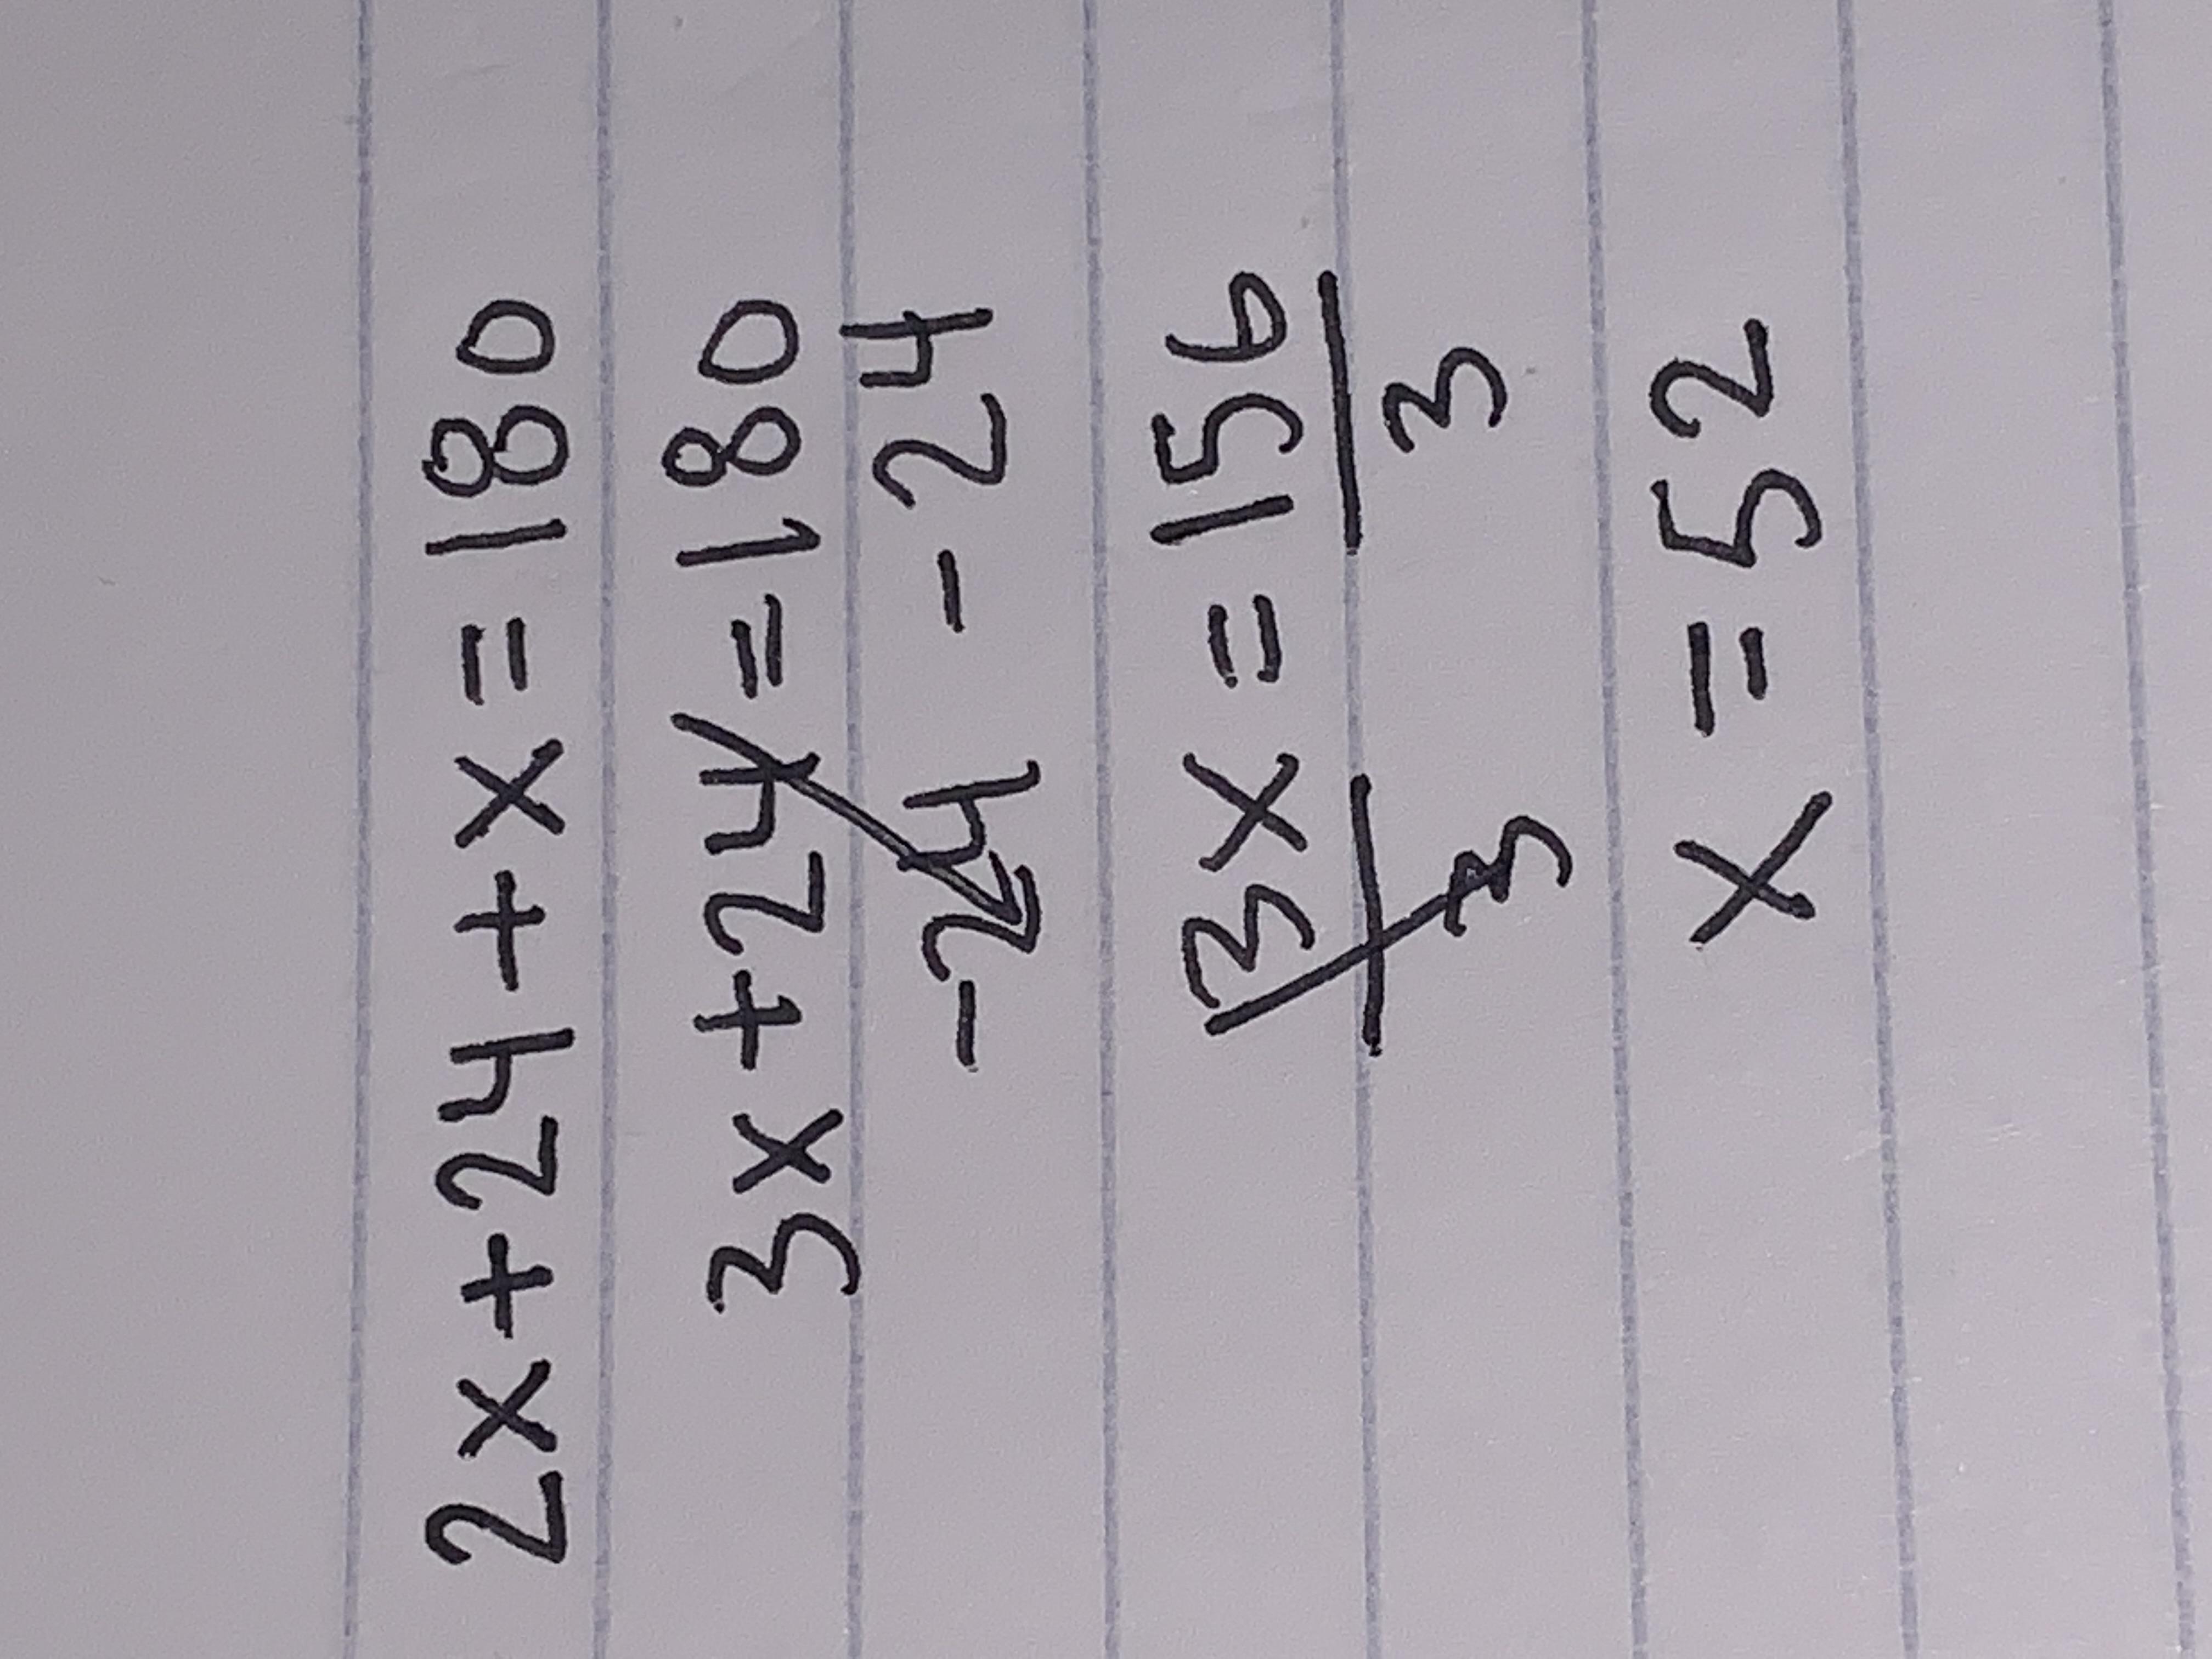 2x+24+x=180
3x+24=180
-24 -24
3x=156
3 3
x=52